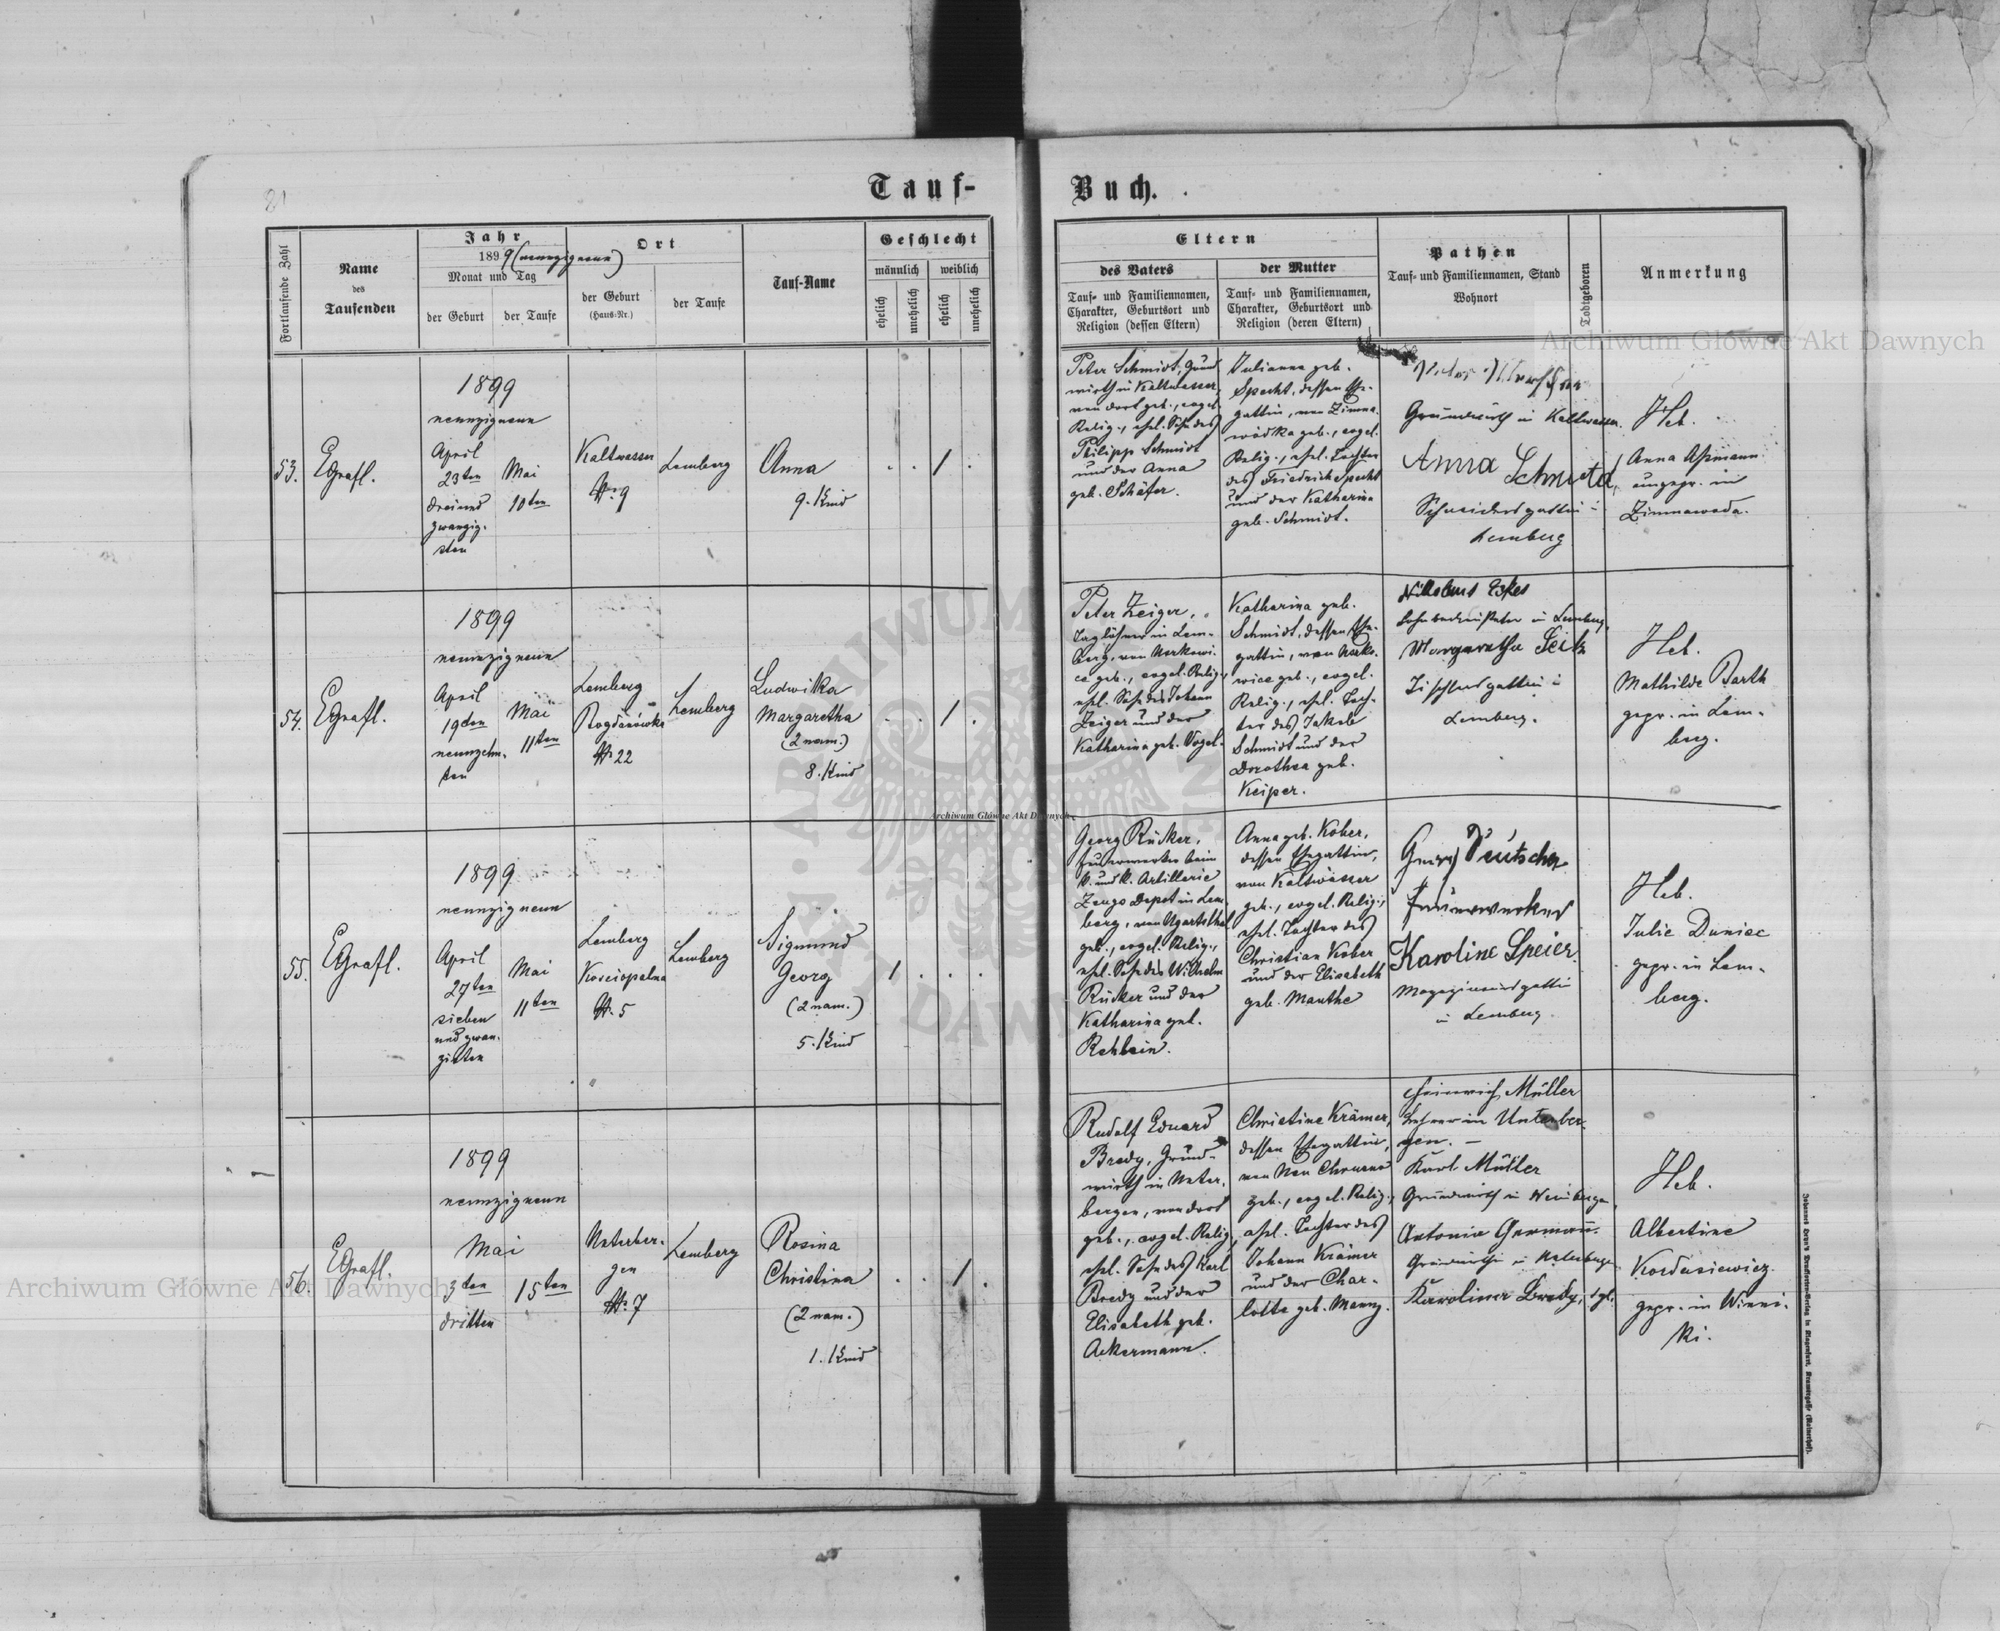 Tauf-
Buch.
21
Fortlaufende Zahl
Name
des
Taufenden
Jahr
1899 (neunzigneun)
Monat und Tag
der Geburt
der Taufe
Ort
der Geburt
(Haus-Nr.)
der Taufe
Tauf-Name
Geschlecht
männlich
weiblich
ehelich
unehelich
ehelich
unehelich
Eltern
des Vaters
Tauf- und Familiennamen,
Charakter, Geburtsort und
Religion (dessen Eltern)
der Mutter
Tauf- und Familiennamen,
Charakter, Geburtsort und
Religion (deren Eltern)
Pathen
Tauf- und Familiennamen, Stand
Wohnort
Todtgeboren
Anmerkung
53.
EGrafl.
1899
neunzigneun
April
23ten
drei und
zwanzig-
sten
Mai
10ten
Kaltwasser
Nr. 9
Lemberg
Anna
9. Kind
Peter Schmidt, Grund
wirth in Kaltwasser,
von dort geb., evgel.
Relig., ehel. Sohn des
Philipp Schmidt
und der Anna
geb. Schäfer.
Julianna geb.
Specht, dessen Ehe-
gattin, von Zimna-
wódka geb., evgel.
Relig., ehel. Tochter
des Friedrich Specht
und der Katharina
geb. Schmidt.
Grundwirth in Kaltwasser.
Anna Schmidt,
Schneidersgattin i
Lemberg
Heb.
Anna Aßmann
ungepr. in
Zimnawoda.
54.
EGrafl.
1899
neunzigneun
April
19ten
neunzehn-
ten
Mai
11ten
Lemberg
Bogdanówka
Nr. 22
Lemberg
Ludwika
Margaretha
(2 nam.)
8. Kind
Peter Zeiger,
Taglöhner in Lem-
berg, von Merkowi-
ce geb., evgel. Relig.,
ehel. Sohn des Johann
Zeiger und der
Katharina geb. Vogel.
Katharina geb.
Schmidt, dessen Ehe-
gattin, von Merko-
wice geb., evgel.
Relig., ehel. Toch-
ter des Jakob
Schmidt und der
Dorothea geb.
Keiper.
Nikolaus
in Lemberg,
Margaretha Seitz
Tischlersgattin i
Lemberg.
Heb.
Mathilde Barth
gepr. in Lem-
berg.
55.
EGrafl.
1899
neunzigneun
April
27ten
sieben
und zwan-
zigsten
Mai
11ten
Lemberg
Kosciopalna
Nr. 5
Lemberg
Sigmund
Georg
(2 nam.)
5. Kind
Georg Rücker,
Feuerwerker beim
k. und k. Artillerie
Zeugs Depot in Lem-
berg, von Ugartsthal
geb., evgel. Relig.,
ehel. Sohn des Wilhelm
Rücker und der
Katharina geb.
Rehbein.
Anna geb. Kober,
dessen Ehegattin,
von Kaltwasser
geb., evgel. Relig.,
ehel. Tochter des
Christian Kober
und der Elisabeth
geb. Manthe
Georg Deutscher
Feuerwerker
Karoline Speier
Magazineursgattin
in Lemberg.
Heb.
Julie Duniec
gepr. in Lem-
berg.
56.
EGrafl.
1899
neunzigneun
Mai
3ten
dritten
15ten
Unterber-
gen
Nr. 7
Lemberg
Rosina
Christina
(2 nam.)
1. Kind
Rudolf Eduard
Bredy, Grund-
wirth in Unter-
bergen, von dort
geb., evgel. Relig.,
ehel. Sohn des Karl
Bredy und der
Elisabeth geb.
Ackermann.
Christine Krämer,
dessen Ehegattin,
von Neu Chrusno
geb., evgel. Relig.,
ehel. Tochter des
Johann Krämer
und der Char-
lotte geb. Manz.
Heinrich Müller
Lehrer in Unterber-
gen. —
Karl Müller
Grundwirth in Weinbergen,
Antonia Germann
Grundwirthin in Unterbergen
Karolina Bredy,
Heb.
Albertine
Kordasiewicz
gepr. in Winni-
ki.
Archiwum Główne Akt Dawnych
Archiwum Główne Akt Dawnych
Archiwum Główne Akt Dawnych